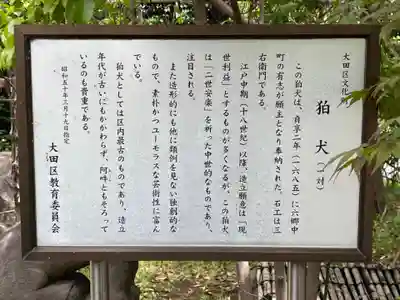 大田区文化財
狛犬(一対)
この狛犬は、貞享二年(一六八五)に六郷中
町の有志が願主となり奉納された。石工は三
右衛門である。
江戸中期(十八世紀)以降、造立願意は「現
世利益」とするものが多くなるが、この狛犬
は「二世安楽」を祈った中世的なものであり、
注目される。
また造形的にも他に類例を見ない独創的な
もので、素朴かつユーモラスな芸術性に富ん
でいる。
狛犬としては区内最古のものであり、造立
年代が古いにもかかわらず、阿吽ともそろって
いるのも貴重である。
昭和五十年三月十九日指定
大田区教育委員会